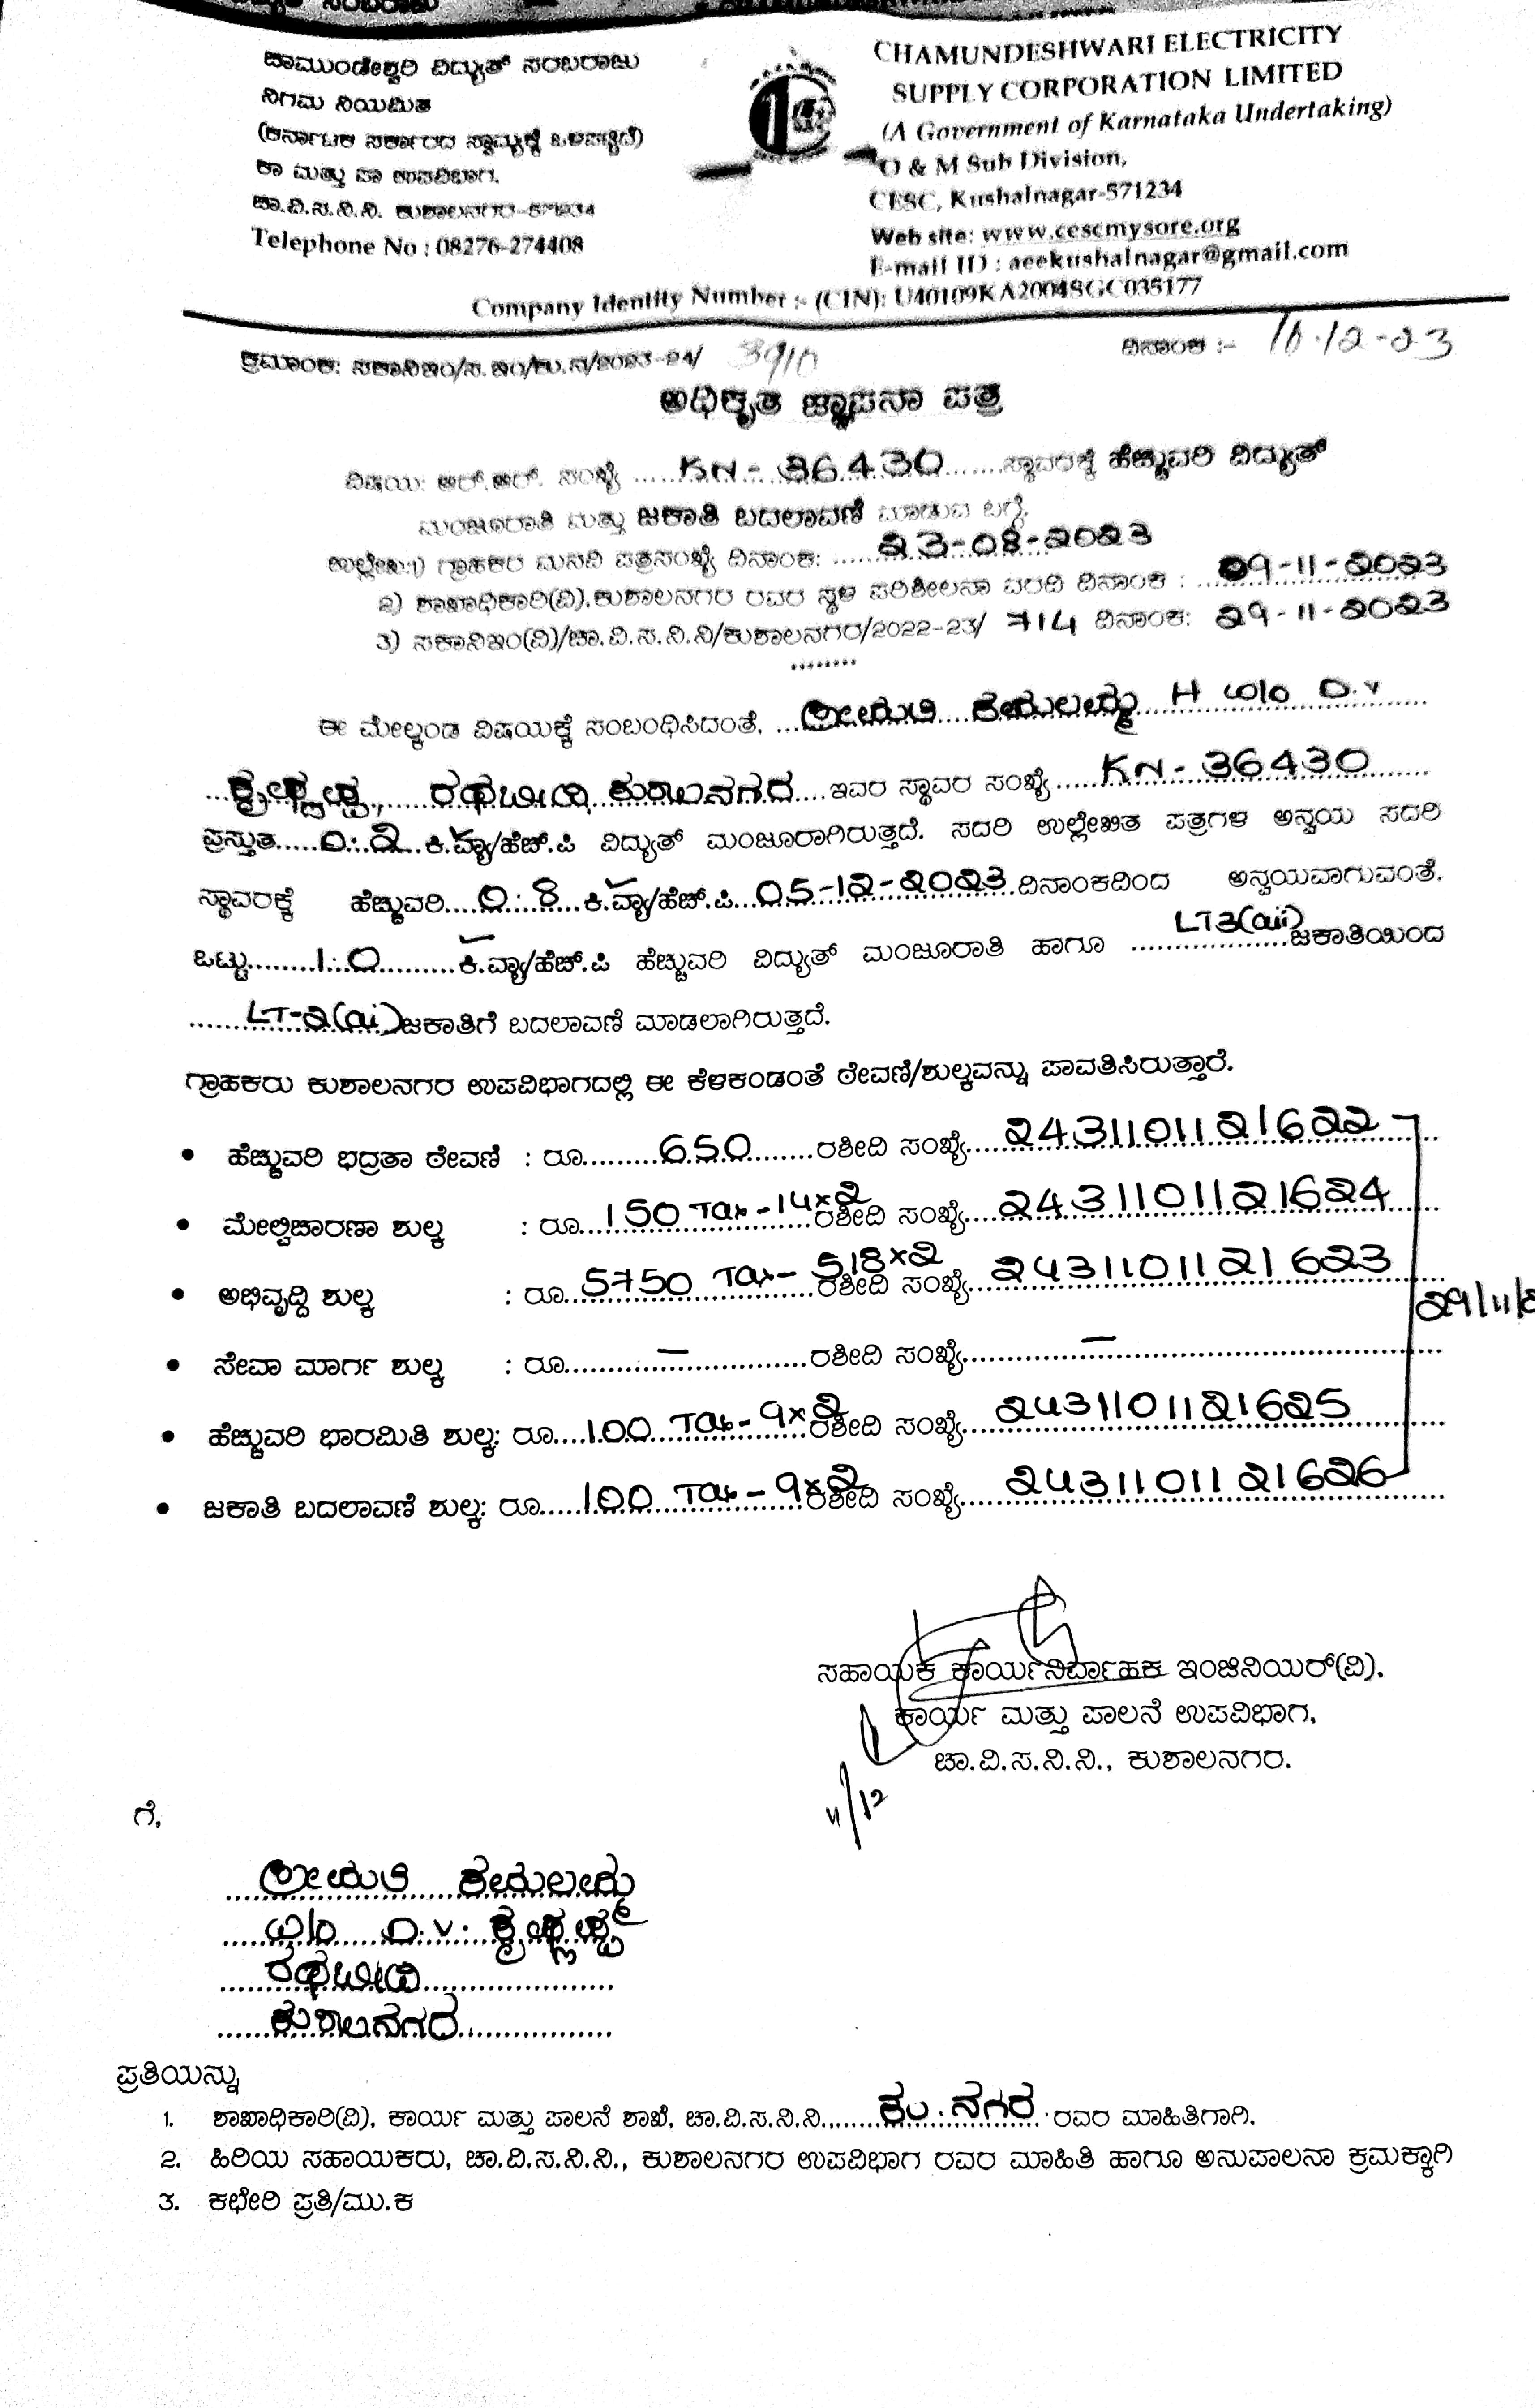 ಚಾಮುಂಡೇಶ್ವರಿ ವಿದ್ಯುತ್ ಸರಬರಾಜು
ನಿಗಮ ನಿಯಮಿತ
(ಕರ್ನಾಟಕ ಸರ್ಕಾರದ ಸ್ವಾಮ್ಯಕ್ಕೆ ಒಳಪಟ್ಟಿದೆ)
ಕಾ ಮತ್ತು ಪಾ ಉಪವಿಭಾಗ,
ಚಾ.ವಿ.ಸ.ನಿ.ನಿ. ಕುಶಾಲನಗರ-571234
Telephone No : 08276-274408
CHAMUNDESHWARI ELECTRICITY
SUPPLY CORPORATION LIMITED
(A Government of Karnataka Undertaking)
O & M Sub Division,
CESC, Kushalnagar-571234
Web site: www.cescmysore.org
E-mail ID : aeekushalnagar@gmail.com
Company Identity Number :- (CIN): U40109KA2004SGC035177
ಕ್ರಮಾಂಕ: ಸಕಾನಿಇಂ/ಸ.ಇಂ/ಕು.ನ/2023-24/ ದಿನಾಂಕ :- 16-12-23
ಅಧಿಕೃತ ಜ್ಞಾಪನಾ ಪತ್ರ
ವಿಷಯ: ಆರ್.ಆರ್. ಸಂಖ್ಯೆ KN-36430 ಸ್ಥಾವರಕ್ಕೆ ಹೆಚ್ಚುವರಿ ವಿದ್ಯುತ್
ಮಂಜೂರಾತಿ ಮತ್ತು ಜಕಾತಿ ಬದಲಾವಣೆ ಮಾಡುವ ಬಗ್ಗೆ.
ಉಲ್ಲೇಖ:1) ಗ್ರಾಹಕರ ಮನವಿ ಪತ್ರಸಂಖ್ಯೆ ದಿನಾಂಕ: 23-08-2023
2) ಶಾಖಾಧಿಕಾರಿ(ವಿ).ಕುಶಾಲನಗರ ರವರ ಸ್ಥಳ ಪರಿಶೀಲನಾ ವರದಿ ದಿನಾಂಕ : 09-11-2023
3) ಸಕಾನಿಇಂ(ವಿ)/ಚಾ.ವಿ.ಸ.ನಿ.ನಿ/ಕುಶಾಲನಗರ/2022-23/ 714 ದಿನಾಂಕ: 29-11-2023
********
ಈ ಮೇಲ್ಕಂಡ ವಿಷಯಕ್ಕೆ ಸಂಬಂಧಿಸಿದಂತೆ, ಶ್ರೀಮತಿ ಕಮಲಮ್ಮ H w/o D.V
ಕೃಷ್ಣಪ್ಪ, ರಥಬೀದಿ, ಕುಶಾಲನಗರ ಇವರ ಸ್ಥಾವರ ಸಂಖ್ಯೆ KN-36430
ಪ್ರಸ್ತುತ 0.2 ಕಿ.ವ್ಯಾ/ಹೆಚ್.ಪಿ ವಿದ್ಯುತ್ ಮಂಜೂರಾಗಿರುತ್ತದೆ. ಸದರಿ ಉಲ್ಲೇಖಿತ ಪತ್ರಗಳ ಅನ್ವಯ ಸದರಿ
ಸ್ಥಾವರಕ್ಕೆ ಹೆಚ್ಚುವರಿ 0.8 ಕಿ.ವ್ಯಾ/ಹೆಚ್.ಪಿ 05-12-2023 ದಿನಾಂಕದಿಂದ ಅನ್ವಯವಾಗುವಂತೆ.
ಒಟ್ಟು 1.0 ಕಿ.ವ್ಯಾ/ಹೆಚ್.ಪಿ ಹೆಚ್ಚುವರಿ ವಿದ್ಯುತ್ ಮಂಜೂರಾತಿ ಹಾಗೂ LT3(aii) ಜಕಾತಿಯಿಂದ
LT-2(ai) ಜಕಾತಿಗೆ ಬದಲಾವಣೆ ಮಾಡಲಾಗಿರುತ್ತದೆ.
ಗ್ರಾಹಕರು ಕುಶಾಲನಗರ ಉಪವಿಭಾಗದಲ್ಲಿ ಈ ಕೆಳಕಂಡಂತೆ ಠೇವಣಿ/ಶುಲ್ಕವನ್ನು ಪಾವತಿಸಿರುತ್ತಾರೆ.
• ಹೆಚ್ಚುವರಿ ಭದ್ರತಾ ಠೇವಣಿ : ರೂ 650 ರಶೀದಿ ಸಂಖ್ಯೆ 2431101121622
• ಮೇಲ್ವಿಚಾರಣಾ ಶುಲ್ಕ : ರೂ 150 Tax-14x2 ರಶೀದಿ ಸಂಖ್ಯೆ 2431101121624
• ಅಭಿವೃದ್ದಿ ಶುಲ್ಕ : ರೂ 5750 Tax-518x2 ರಶೀದಿ ಸಂಖ್ಯೆ 2431101121623
29/11/2
• ಸೇವಾ ಮಾರ್ಗ ಶುಲ್ಕ : ರೂ — ರಶೀದಿ ಸಂಖ್ಯೆ —
• ಹೆಚ್ಚುವರಿ ಭಾರಮಿತಿ ಶುಲ್ಕ: ರೂ 100 Tax-9x2 ರಶೀದಿ ಸಂಖ್ಯೆ 2431101121625
• ಜಕಾತಿ ಬದಲಾವಣೆ ಶುಲ್ಕ: ರೂ 100 Tax-9x2 ರಶೀದಿ ಸಂಖ್ಯೆ 2431101121626
ಸಹಾಯಕ ಕಾರ್ಯನಿರ್ವಾಹಕ ಇಂಜಿನಿಯರ್(ವಿ),
ಕಾರ್ಯ ಮತ್ತು ಪಾಲನೆ ಉಪವಿಭಾಗ,
ಚಾ.ವಿ.ಸ.ನಿ.ನಿ., ಕುಶಾಲನಗರ.
11/12
ಗೆ,
ಶ್ರೀಮತಿ ಕಮಲಮ್ಮ
w/o D.V. ಕೃಷ್ಣಪ್ಪ
ರಥಬೀದಿ
ಕುಶಾಲನಗರ
ಪ್ರತಿಯನ್ನು
1. ಶಾಖಾಧಿಕಾರಿ(ವಿ), ಕಾರ್ಯ ಮತ್ತು ಪಾಲನೆ ಶಾಖೆ, ಚಾ.ವಿ.ಸ.ನಿ.ನಿ., ಕು.ನಗರ ರವರ ಮಾಹಿತಿಗಾಗಿ.
2. ಹಿರಿಯ ಸಹಾಯಕರು, ಚಾ.ವಿ.ಸ.ನಿ.ನಿ., ಕುಶಾಲನಗರ ಉಪವಿಭಾಗ ರವರ ಮಾಹಿತಿ ಹಾಗೂ ಅನುಪಾಲನಾ ಕ್ರಮಕ್ಕಾಗಿ
3. ಕಛೇರಿ ಪ್ರತಿ/ಮು.ಕ